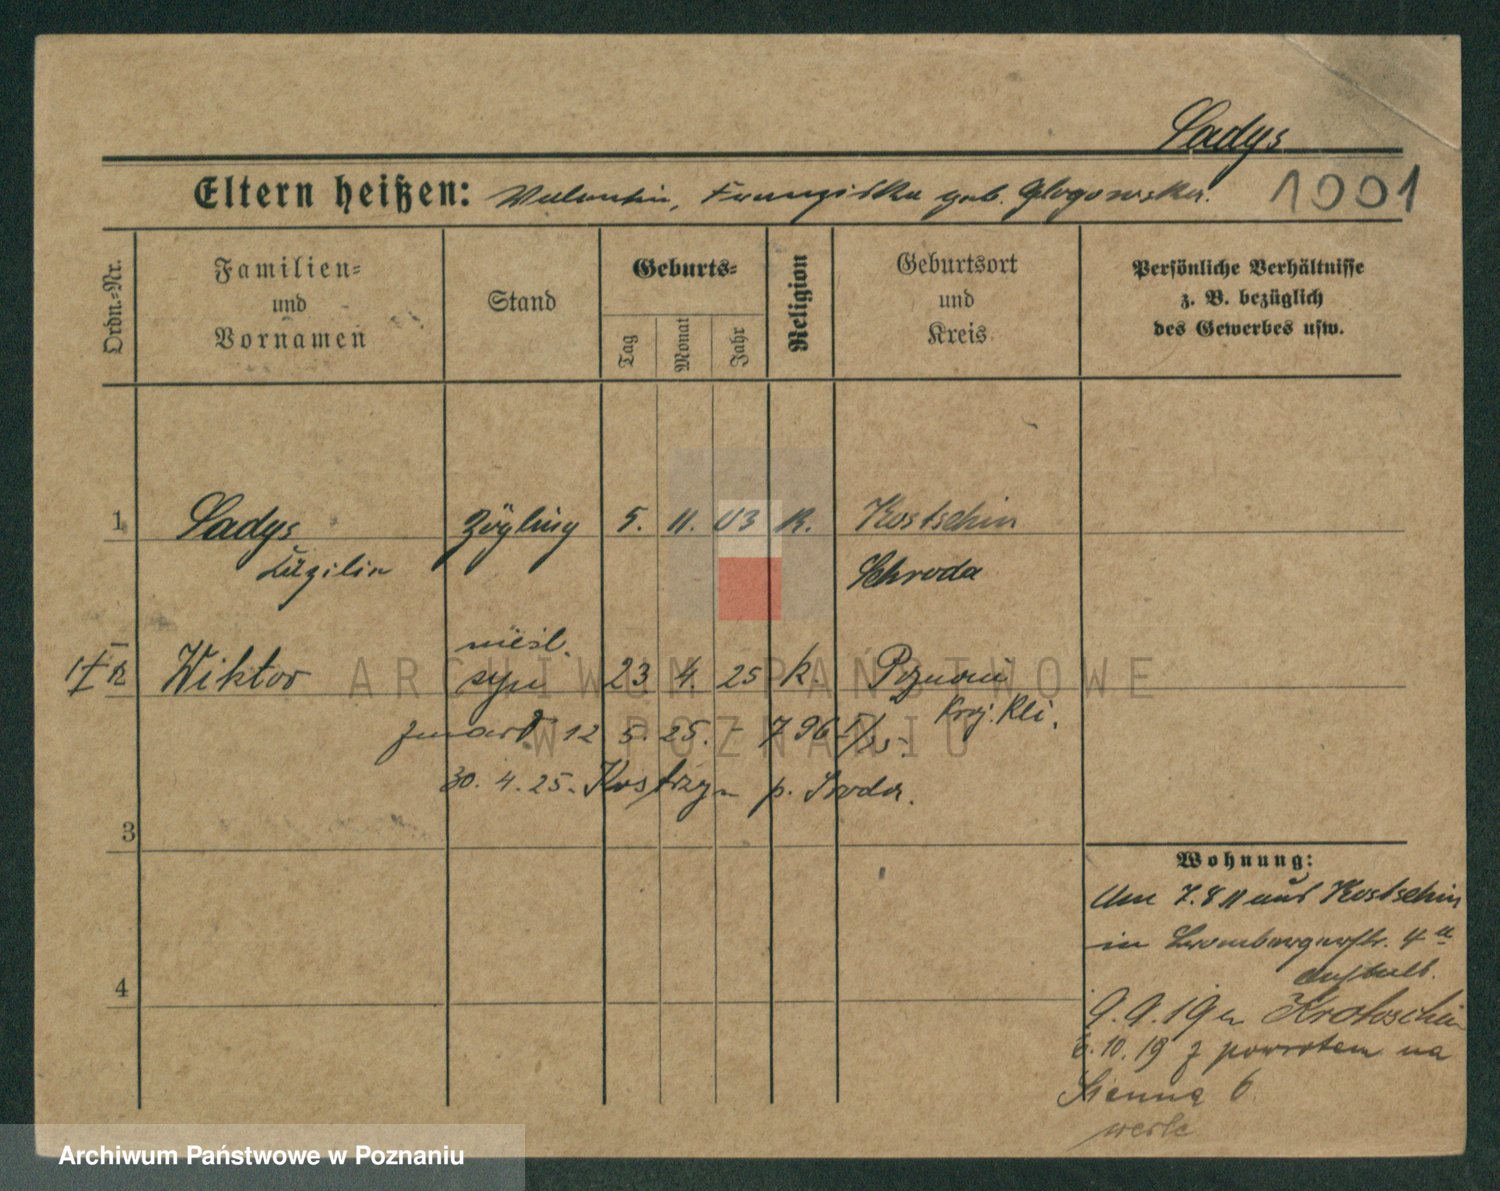 Ladys
Eltern heißen: Valentin, Franziska geb. Glogowska.
1001
Ordn.-Nr.
Familien-
und
Vornamen
Stand
Geburts-
Tag
Monat
Jahr
Religion
Geburtsort
und
Kreis
Persönliche Verhältnisse
z. B. bezüglich
des Gewerbes usw.
1 Ladys Zögling 5. 11. 03 K. Kostschin
Schroda
nieśl.
Wiktor syn 23 4. 25 k. Poznań
zmarł 12 5. 25. - 796
30. 4. 25. Kostrzyn p. Środa.
3
Wohnung:
Am 7. 8 11 aus Kostschin
in Brombergerstr. 4a
Anstalt.
4
9. 9. 19 n Krotoschin
6. 10. 19 z powrotem na
6
ARCHIWUM PAŃSTWOWE
W POZNANIU
Archiwum Państwowe w Poznaniu